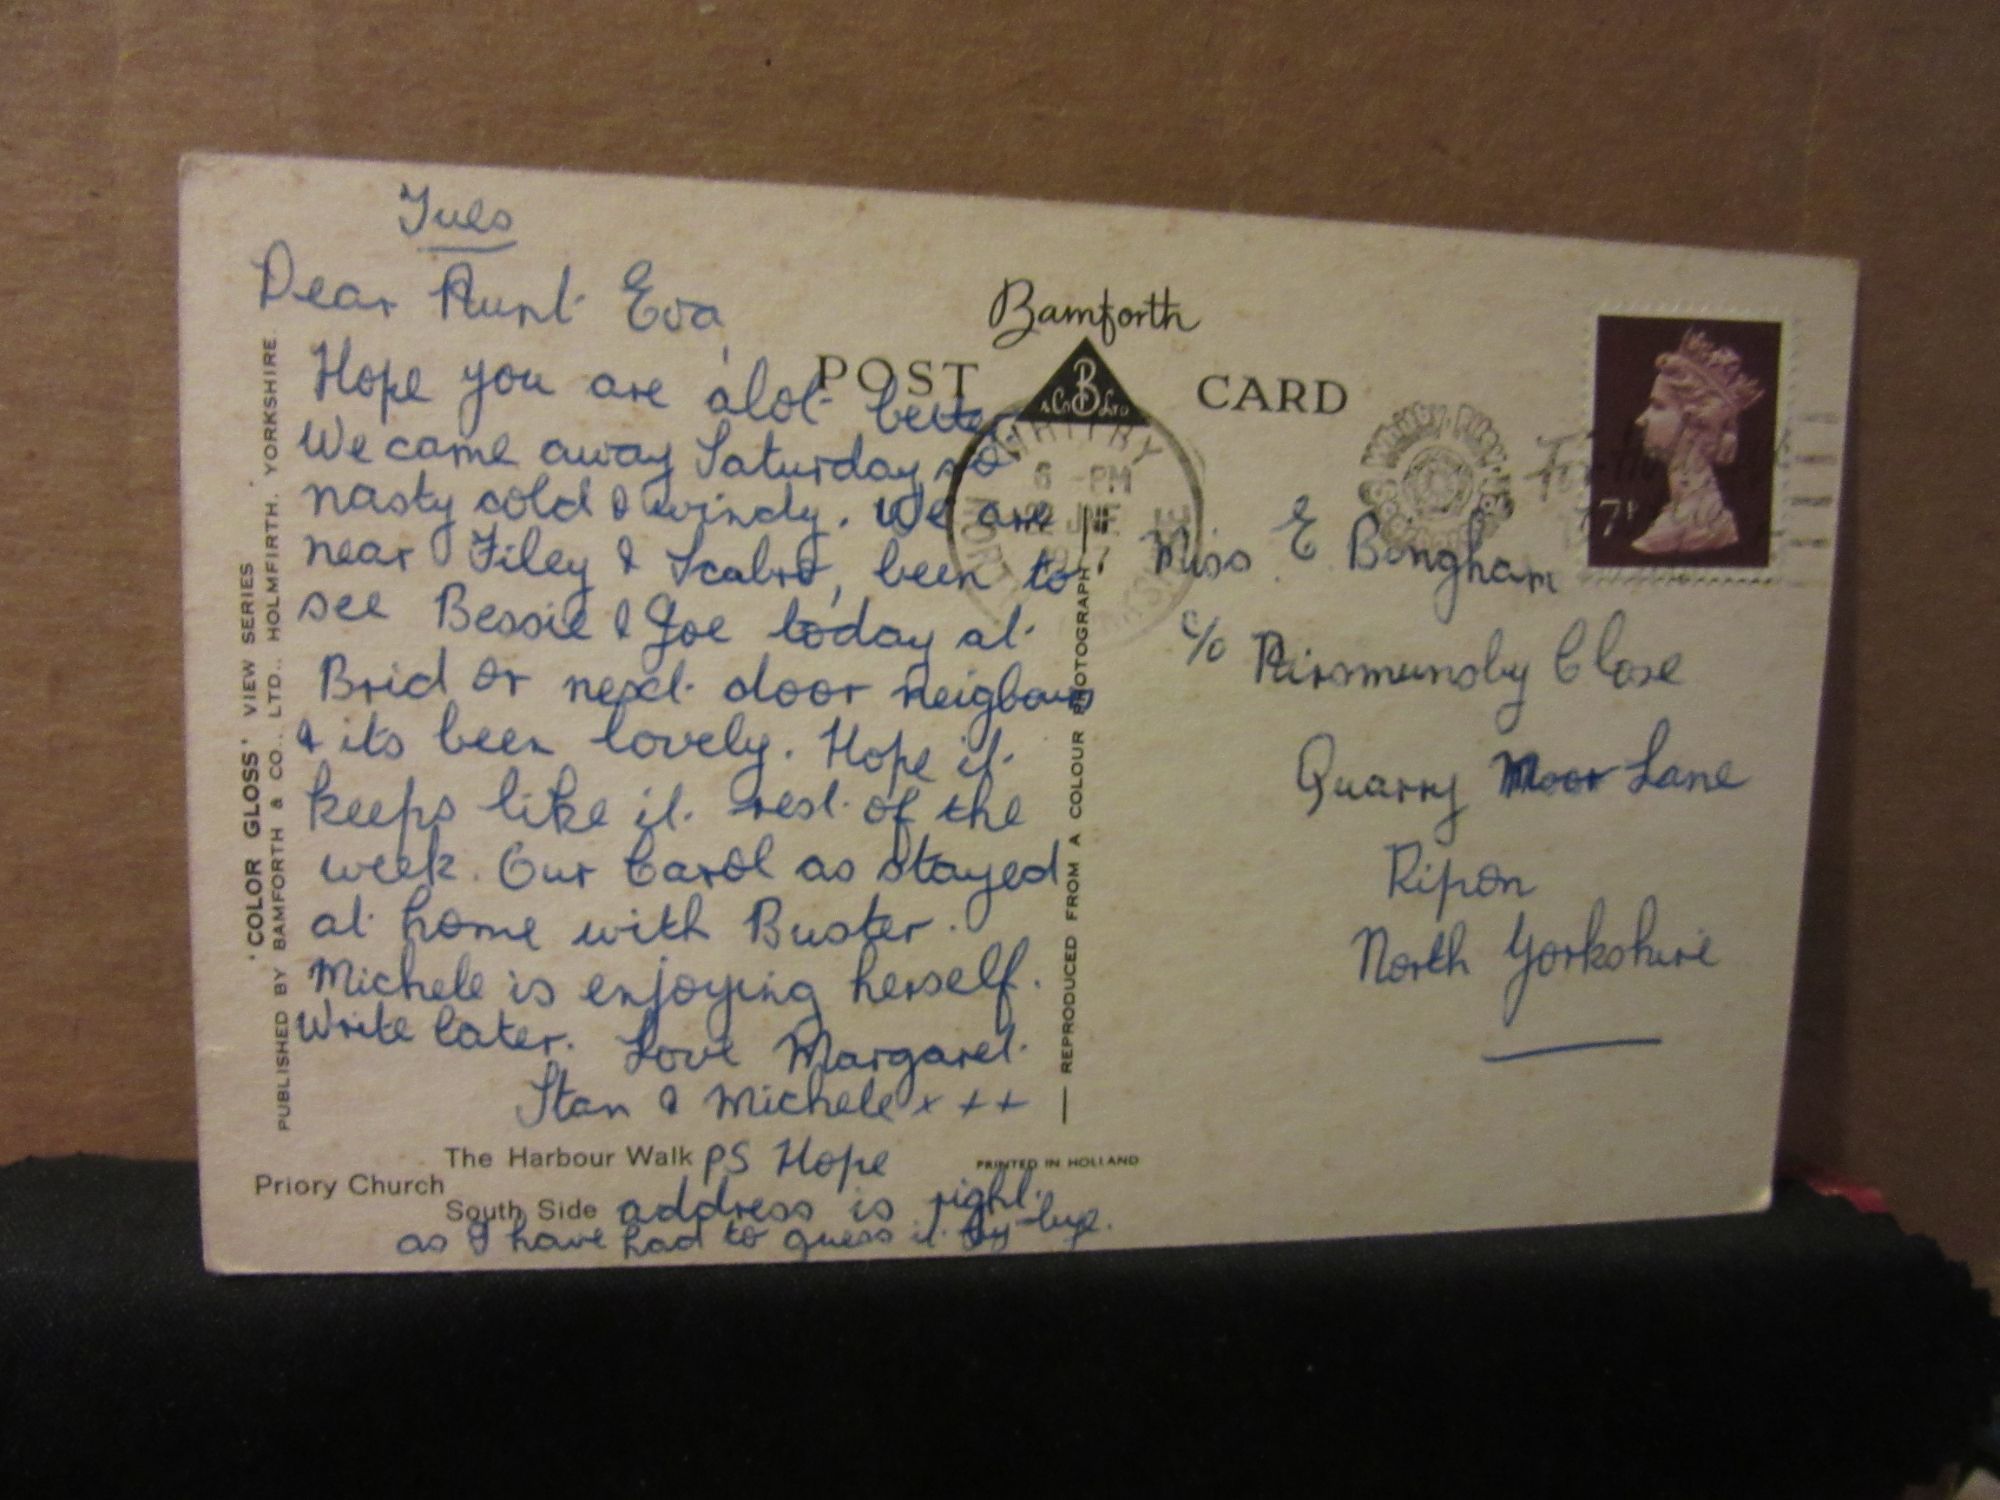 Tues
Dear Aunt Eva,
Hope you are alot better.
We came away Saturday so
nasty cold & windy. We are
near Filey & Scabro, been to
see Bessie & Joe today at
Brid or next door neigbours
& its been lovely. Hope it
keeps like it rest of the
week. Our Carol as stayed
at home with Buster.
Michele is enjoying herself.
Write later. Love Margaret
Stan & Michele x x x
PS Hope
address is right
as I have had to guess it.
'COLOR GLOSS' VIEW SERIES
PUBLISHED BY BAMFORTH & CO., LTD., HOLMFIRTH. YORKSHIRE.
The Harbour Walk
Priory Church
South Side
PRINTED IN HOLLAND
REPRODUCED FROM A COLOUR PHOTOGRAPH
Bamforth
POST CARD
B
& Co Ltd
WHITBY
6 -PM
22 JNE
7P
Miss E Bongham
c/o
Close
Quarry Moor Lane
Ripon
North Yorkshire